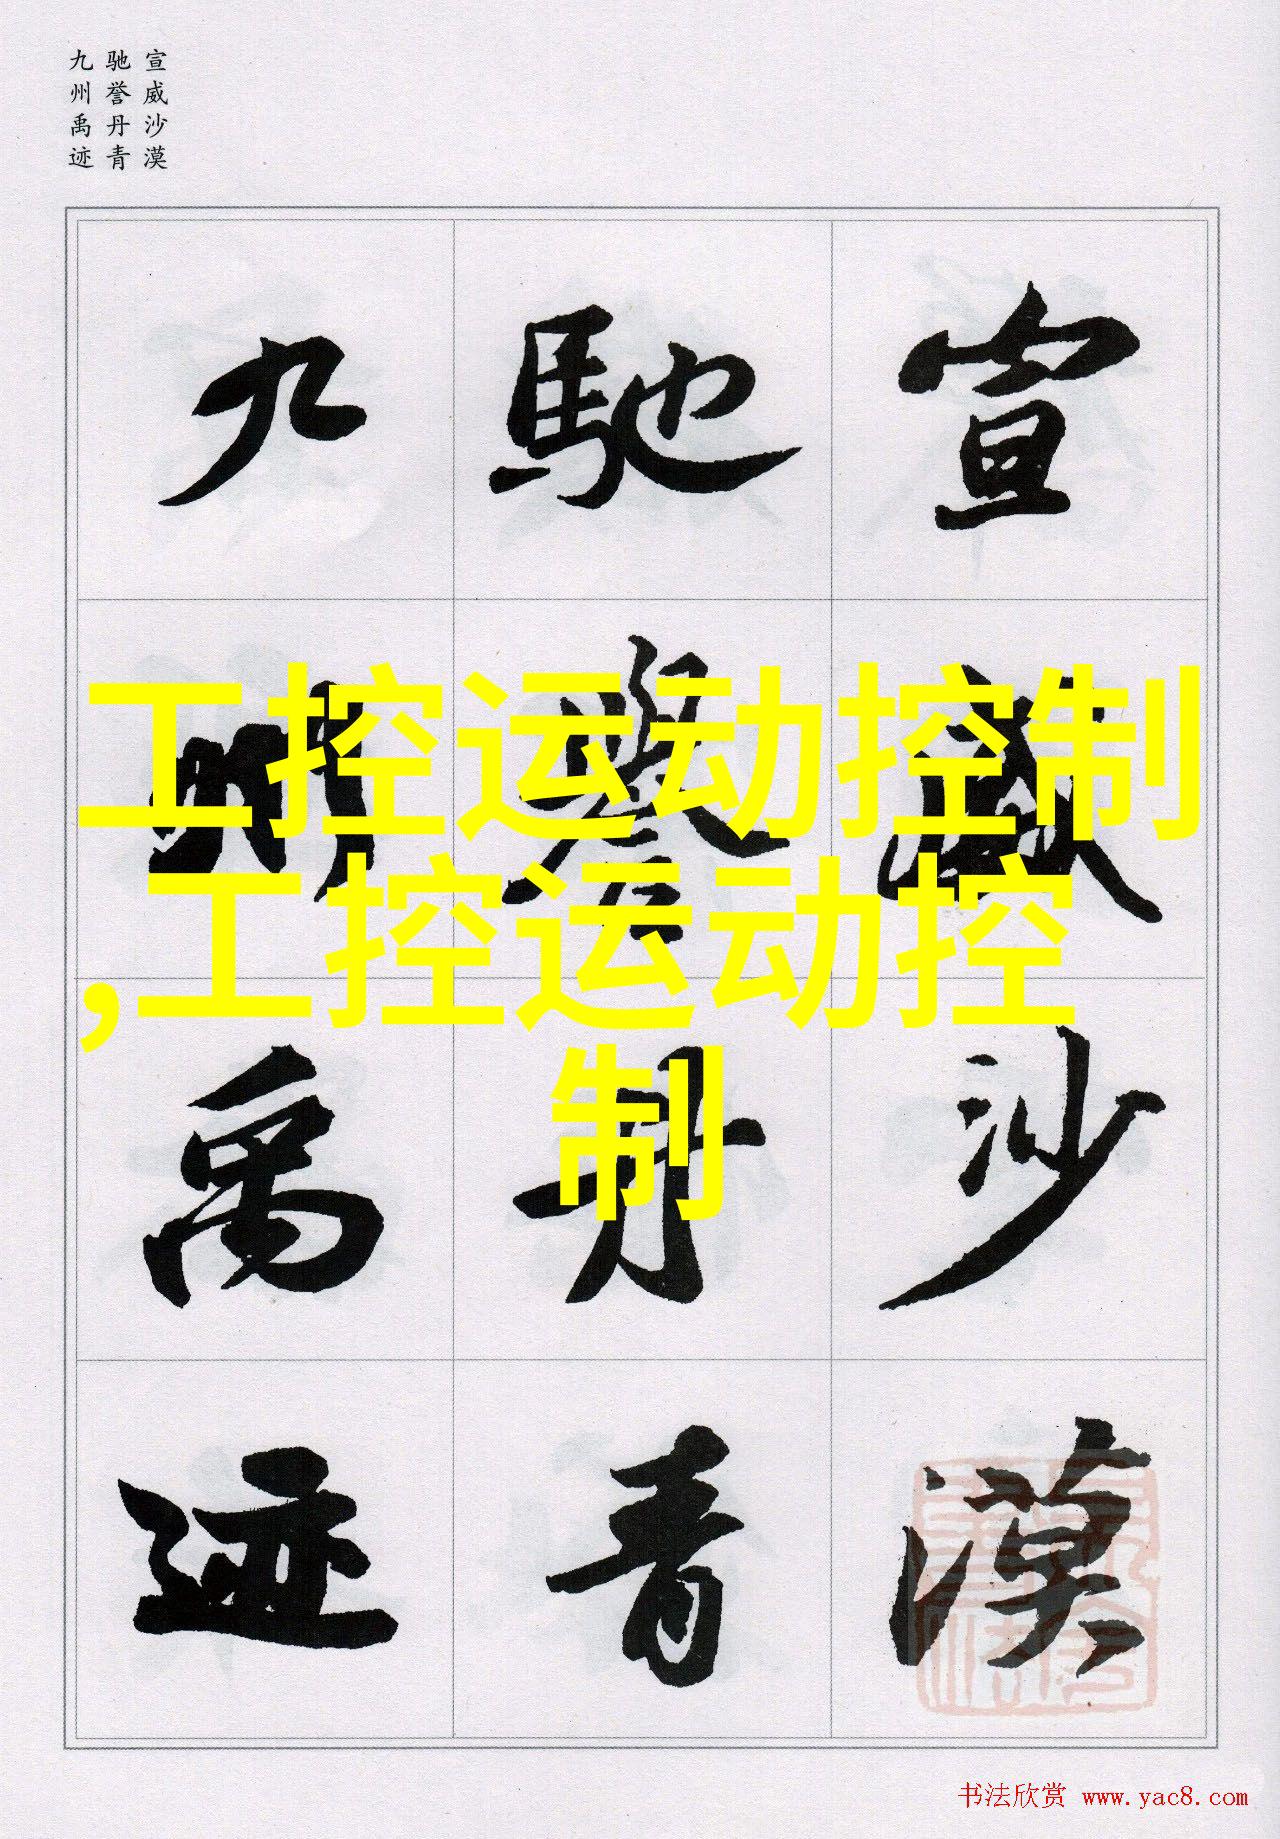 宣威沙漠
驰誉丹青
九州禹迹
宣威沙漠
馳譽丹青
九州禹迹
工控运动控制
,工控运动控
制
书法欣赏 www.yac8.com